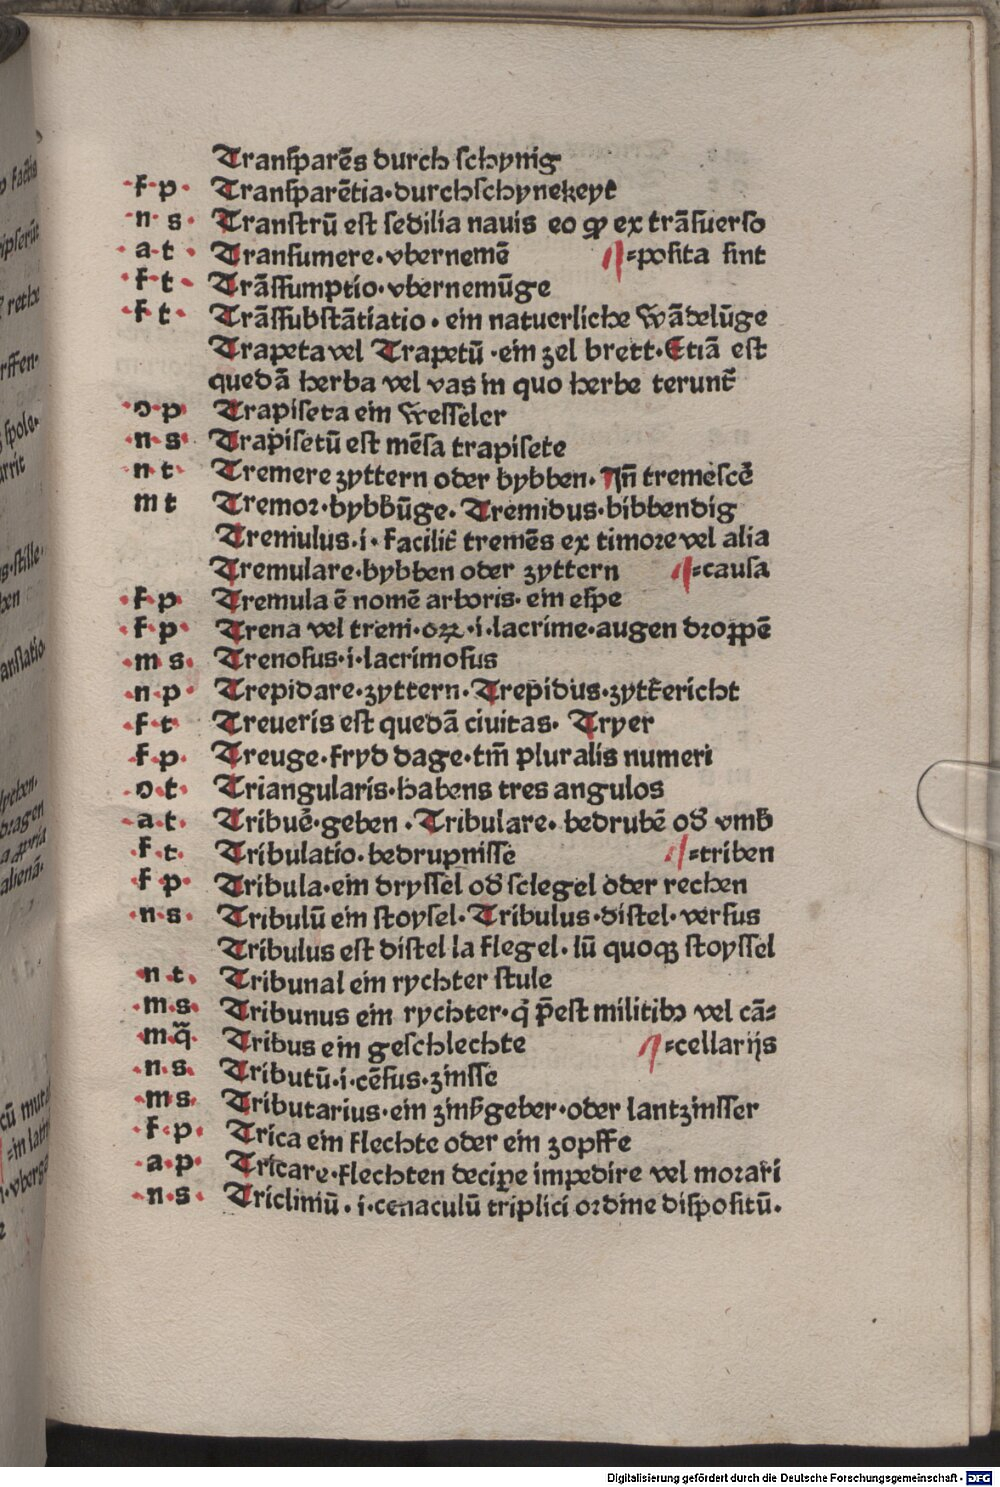 Tranſparēs durch ſchynig
f p Tranſparētia·durchſchynekeyt
n s Tranſtrū eſt ſedilia nauis eo ꝙ ex trāſuerſo
a t Tranſumere·vbernemē =poſita ſint
f t Trāſſumptio·vbernemūge
f t Trāſſubſtātiatio·ein natuerliche wādelūge
Trapeta vel Trapetū·ein zel brett·Etiā eſt
quedā herba vel vas in quo herbe terunt̄
ɔ p Trapiſeta ein weſſeler
n s Trapiſetū eſt mēſa trapiſete
n t Tremere zyttern oder bybben·Jn̄ tremeſcē
m t Tremoꝛ·bybbūge·Tremidus·bibbendig
Tremulus·i·facilit̄ tremēs ex timoꝛe vel alia
Tremulare·bybben oder zyttern =cauſa
f p Tremula ē nomē arboris·ein eſpe
f p Trena vel treni·oꝝ·i·lacrime·augen dꝛoppē
m s Trenoſus·i·lacrimoſus
n p Trepidare·zyttern·Trepidus·zytt̄ericht
f t Treueris eſt quedā ciuitas·Tryer
f p Treuge·fryd dage·tm̄ pluralis numeri
ɔ t Triangularis·habens tres angulos
a t Tribuē·geben·Tribulare·bedrubē od̓ vmb
f t Tribulatio·bedrupniſſe =triben
f p Tribula·ein dryſſel od̓ ſclegel oder rechen
n s Tribulū ein ſtoyſel·Tribulus·diſtel·verſus
Tribulus eſt diſtel la flegel·lū quoqꝫ ſtoyſſel
n t Tribunal ein rychter ſtule
m s Tribunus ein rychter·q̇ p̄eſt militibꝫ vel cā=
m q̄ Tribus ein geſchlechte =cellarijs
n s Tributū·i·cēſus·zinſſe
m s Tributarius·ein zinſgeber·oder lantzinſſer
f p Trica ein flechte oder ein zopffe
a p Tricare·flechten decipe impedire vel moꝛari
n s Tricliniū·i·cenaculū triplici oꝛdine diſpoſitū.
Digitalisierung gefördert durch die Deutsche Forschungsgemeinschaft - DFG